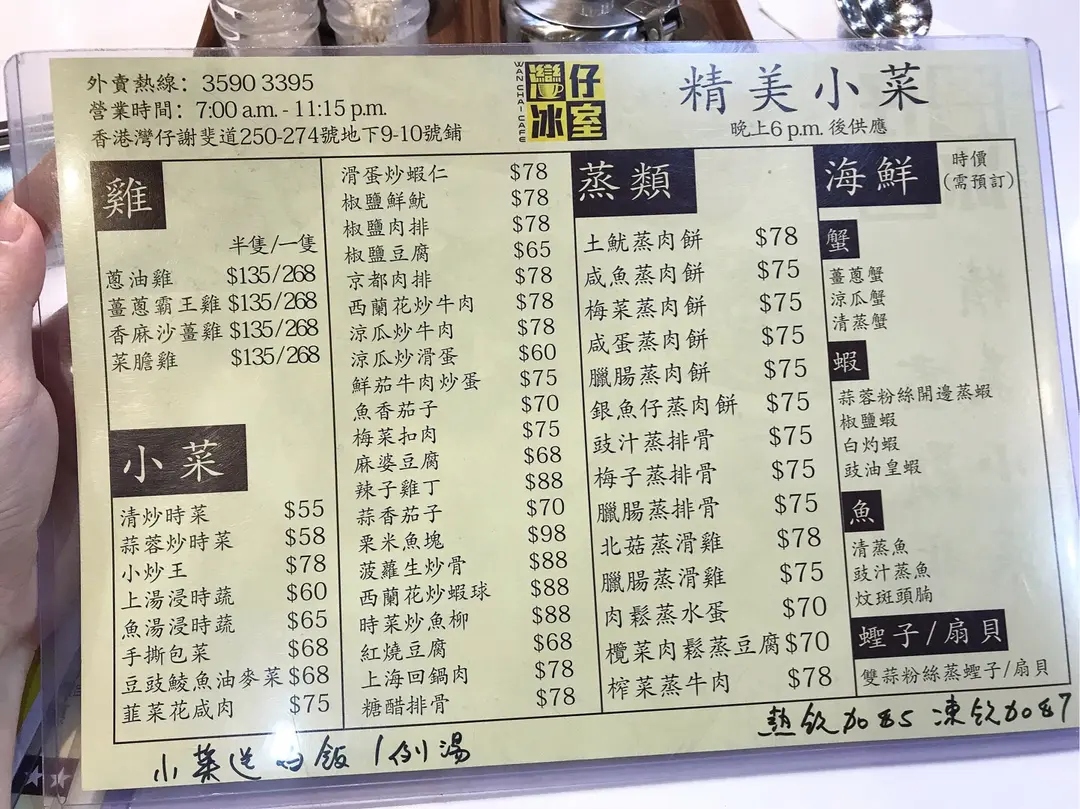 外賣熱線：3590 3395
營業時間：7:00 a.m. - 11:15 p.m.
香港灣仔謝斐道250-274號地下9-10號鋪
WAN CHAI CAFE
灣仔冰室
精美小菜
晚上6 p.m. 後供應
雞
半隻/一隻
蔥油雞 $135/268
薑蔥霸王雞 $135/268
香麻沙薑雞 $135/268
菜膽雞 $135/268
小菜
清炒時菜 $55
蒜蓉炒時菜 $58
小炒王 $78
上湯浸時蔬 $60
魚湯浸時蔬 $65
手撕包菜 $68
豆豉鯪魚油麥菜 $68
韮菜花咸肉 $75
滑蛋炒蝦仁 $78
椒鹽鮮魷 $78
椒鹽肉排 $78
椒鹽豆腐 $65
京都肉排 $78
西蘭花炒牛肉 $78
涼瓜炒牛肉 $78
涼瓜炒滑蛋 $60
鮮茄牛肉炒蛋 $75
魚香茄子 $70
梅菜扣肉 $75
麻婆豆腐 $68
辣子雞丁 $88
蒜香茄子 $70
粟米魚塊 $98
菠蘿生炒骨 $88
西蘭花炒蝦球 $88
時菜炒魚柳 $88
紅燒豆腐 $68
上海回鍋肉 $78
糖醋排骨 $78
蒸類
土魷蒸肉餅 $78
咸魚蒸肉餅 $75
梅菜蒸肉餅 $75
咸蛋蒸肉餅 $75
臘腸蒸肉餅 $75
銀魚仔蒸肉餅 $75
豉汁蒸排骨 $75
梅子蒸排骨 $75
臘腸蒸排骨 $75
北菇蒸滑雞 $78
臘腸蒸滑雞 $75
肉鬆蒸水蛋 $70
欖菜肉鬆蒸豆腐 $70
榨菜蒸牛肉 $78
海鮮
時價
(需預訂)
蟹
薑蔥蟹
涼瓜蟹
清蒸蟹
蝦
蒜蓉粉絲開邊蒸蝦
椒鹽蝦
白灼蝦
豉油皇蝦
魚
清蒸魚
豉汁蒸魚
炆斑頭腩
蟶子/扇貝
雙蒜粉絲蒸蟶子/扇貝
小菜送白飯 1例湯
熱飲加$5 凍飲加$7